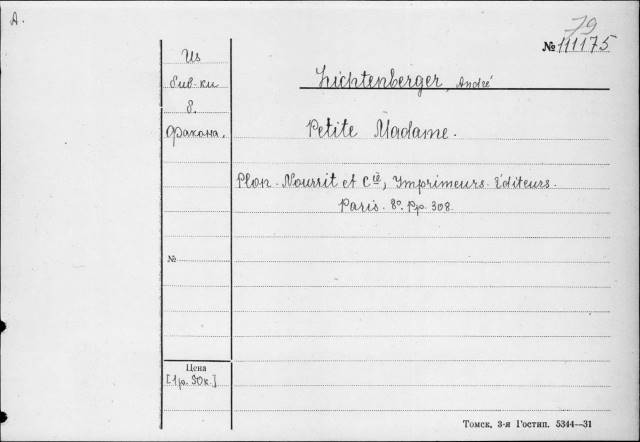 А.
79
№ 111175
Из
биб-ки
б.
Факона.
Lichtenberger, André
Petite Madame.
Plon-Nourrit et Cie, Imprimeurs-Éditeurs.
Paris. 8º. Pp. 308.
№
Цена
[1р. 90к.]
Томск, 3-я Гостип. 5344—31